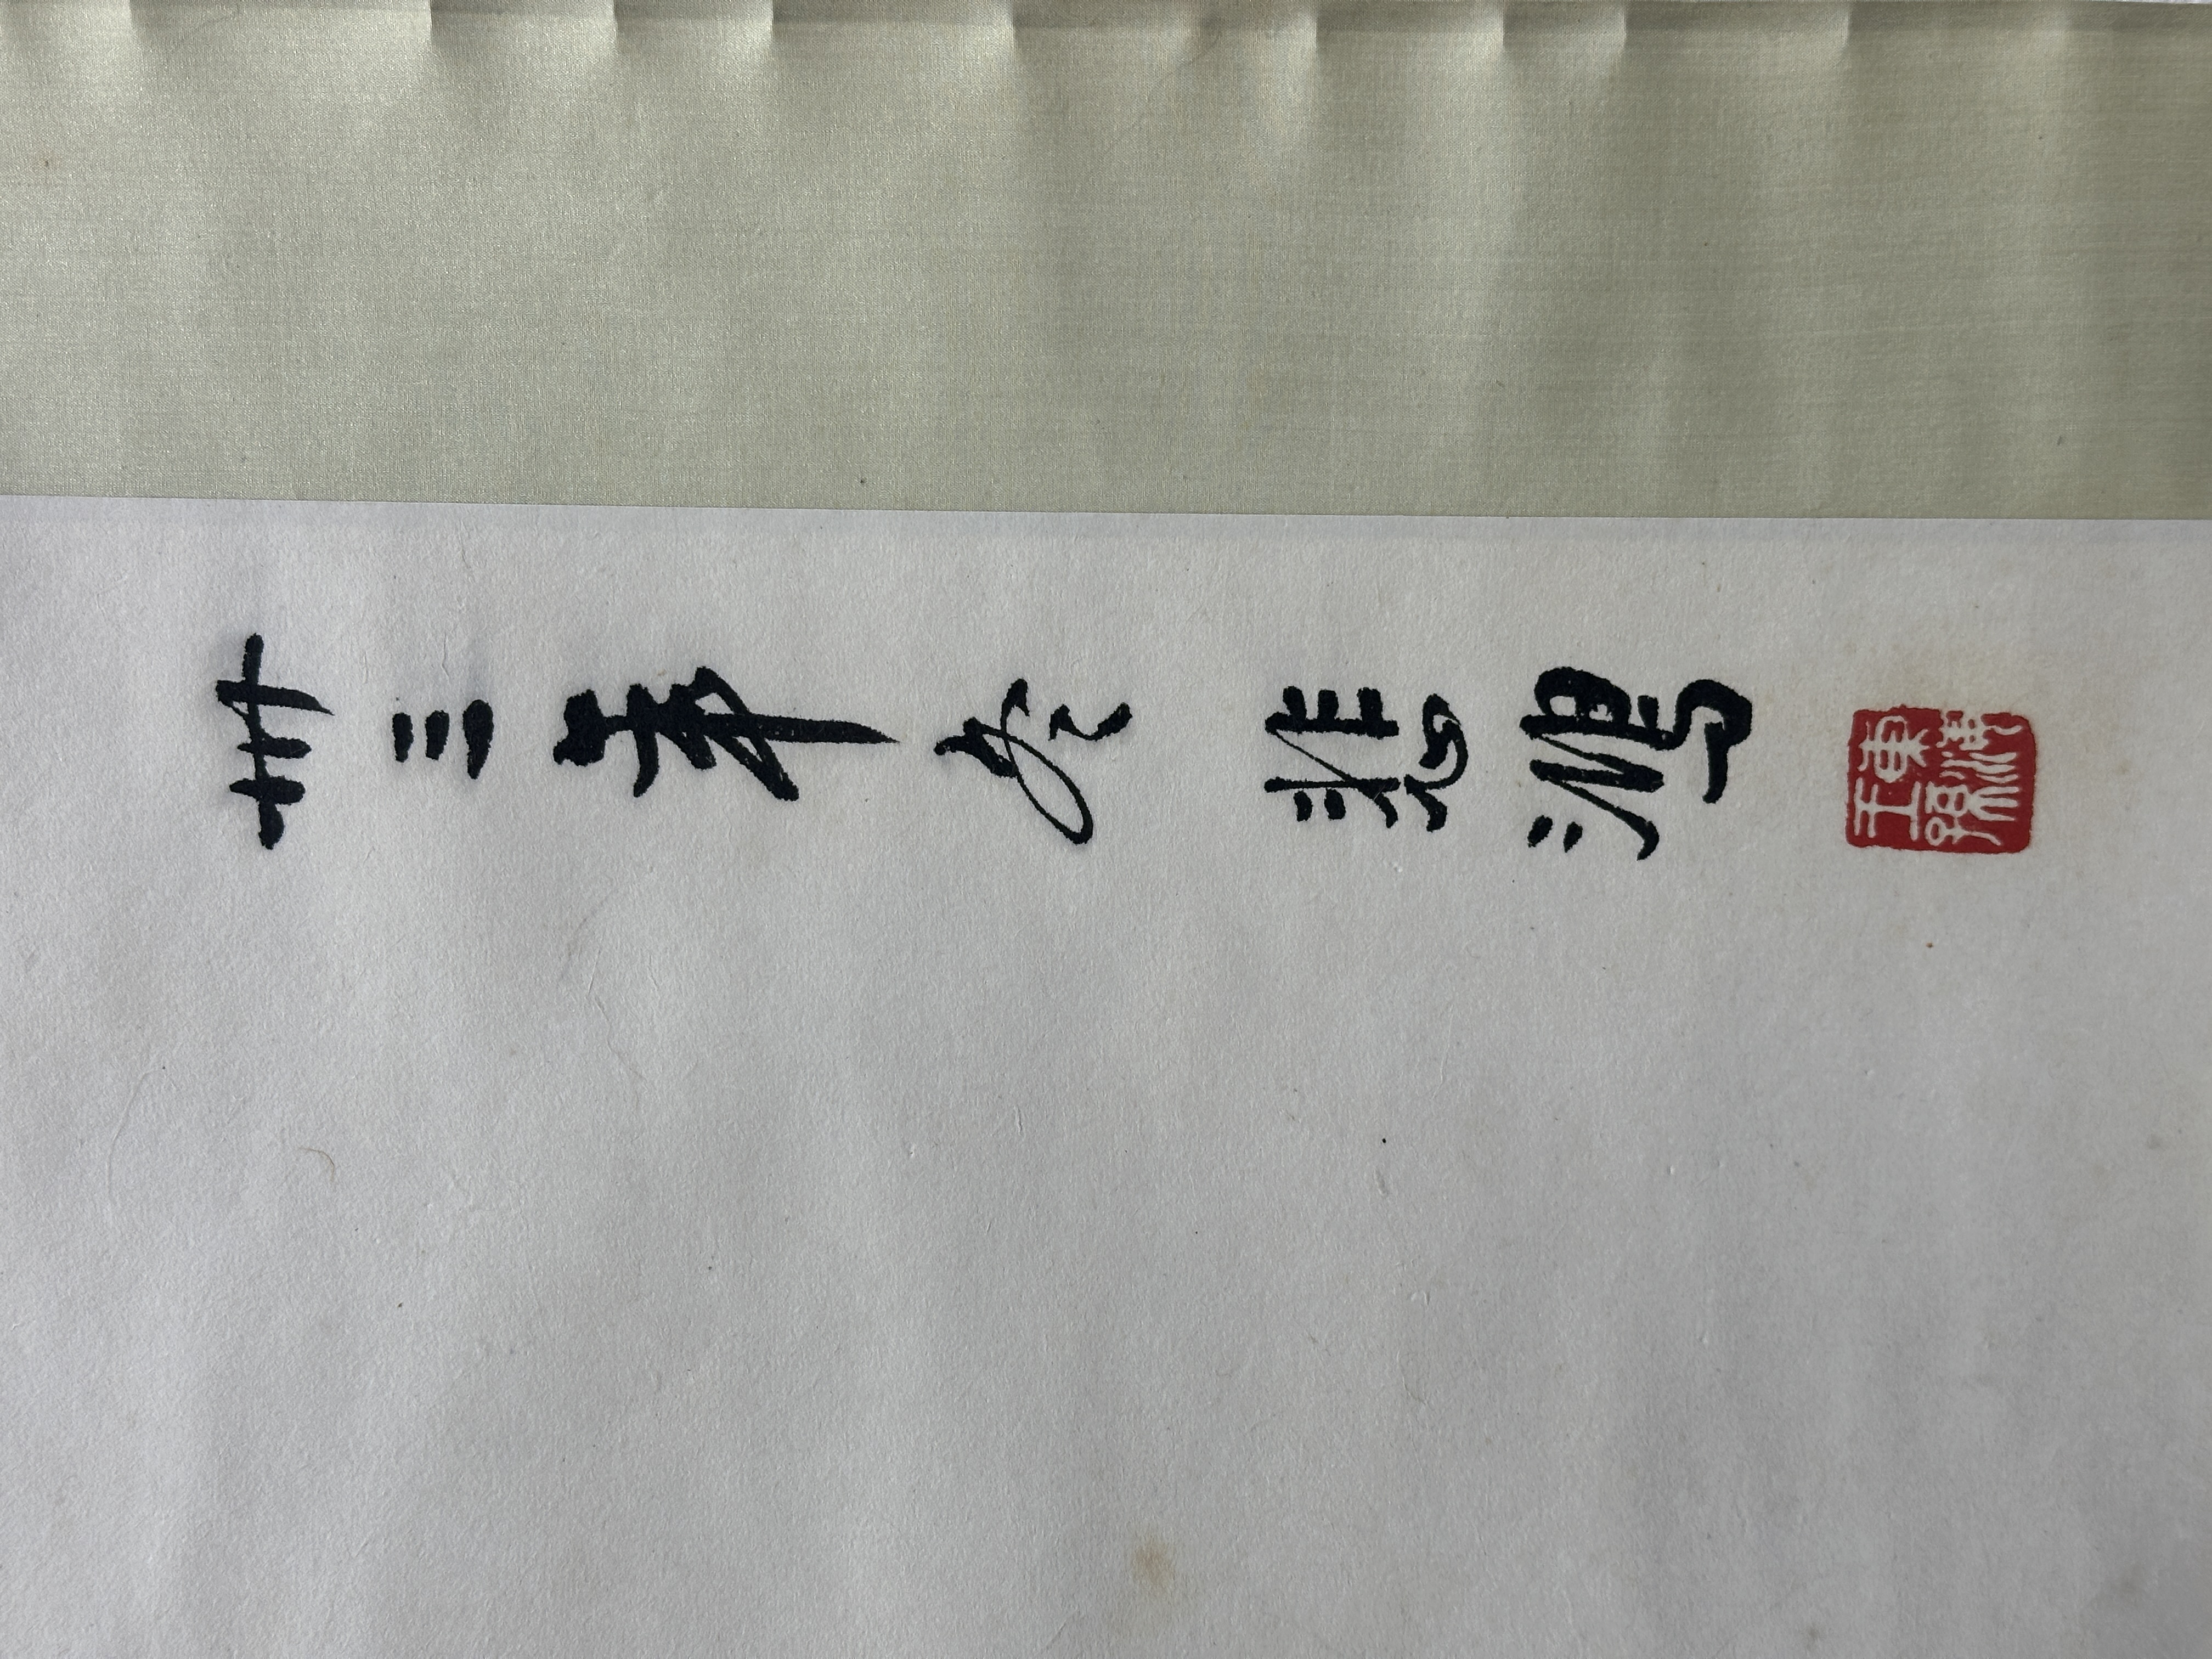 卅三年冬 悲鴻
東海王孫